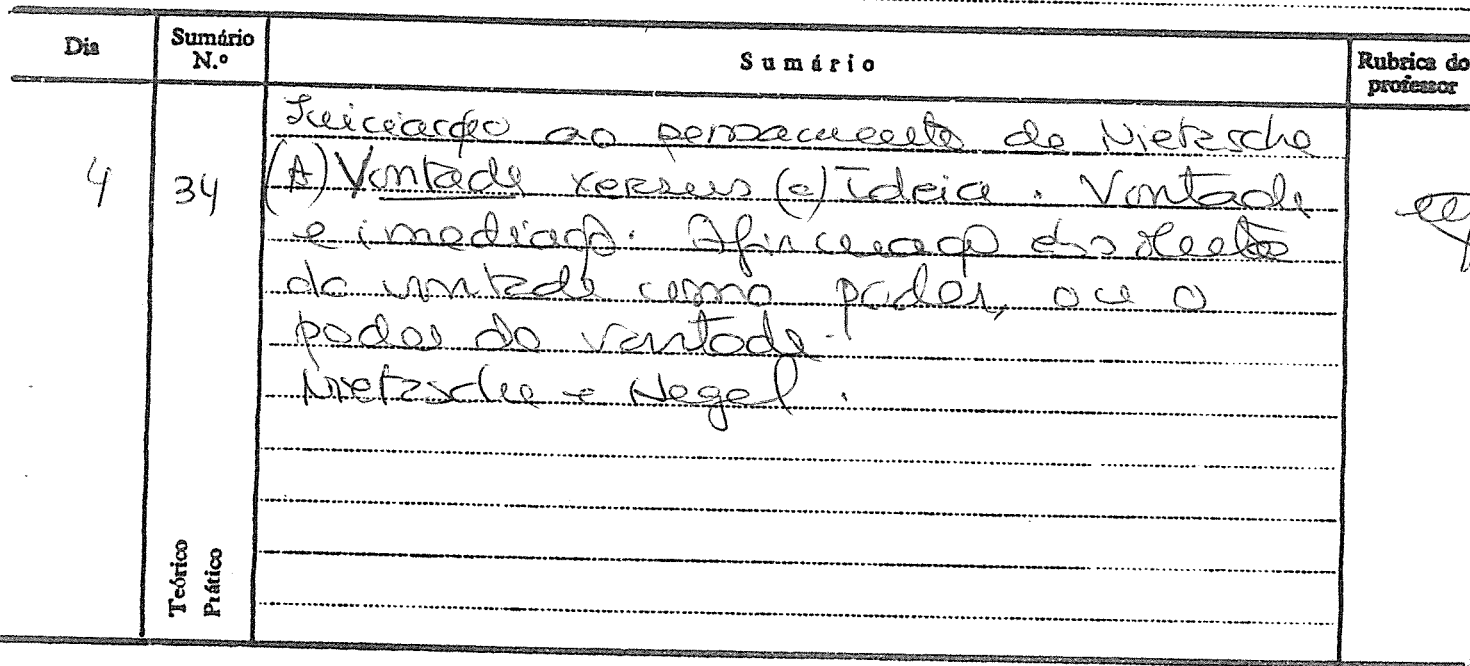 Dia
Sumário N.º
Sumário
Rubrica do professor
4
34
Iniciação ao pensamento de Nietzsche
(A) Vontade versus (a) Ideia. Vontade
e imediação. Afirmação absoluta
da vontade como poder, ou o
poder da vontade.
Nietzsche e Hegel.
Teórico
Prático